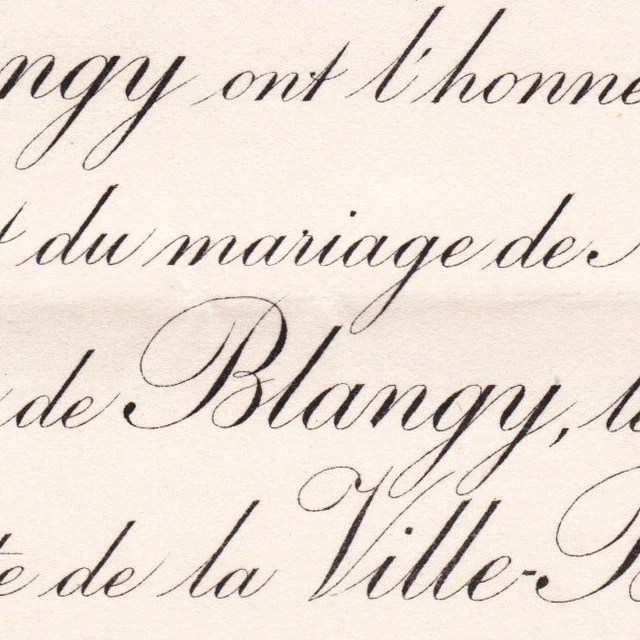 ngy ont l'honne
du mariage de
de Blangy, l
de la Ville-